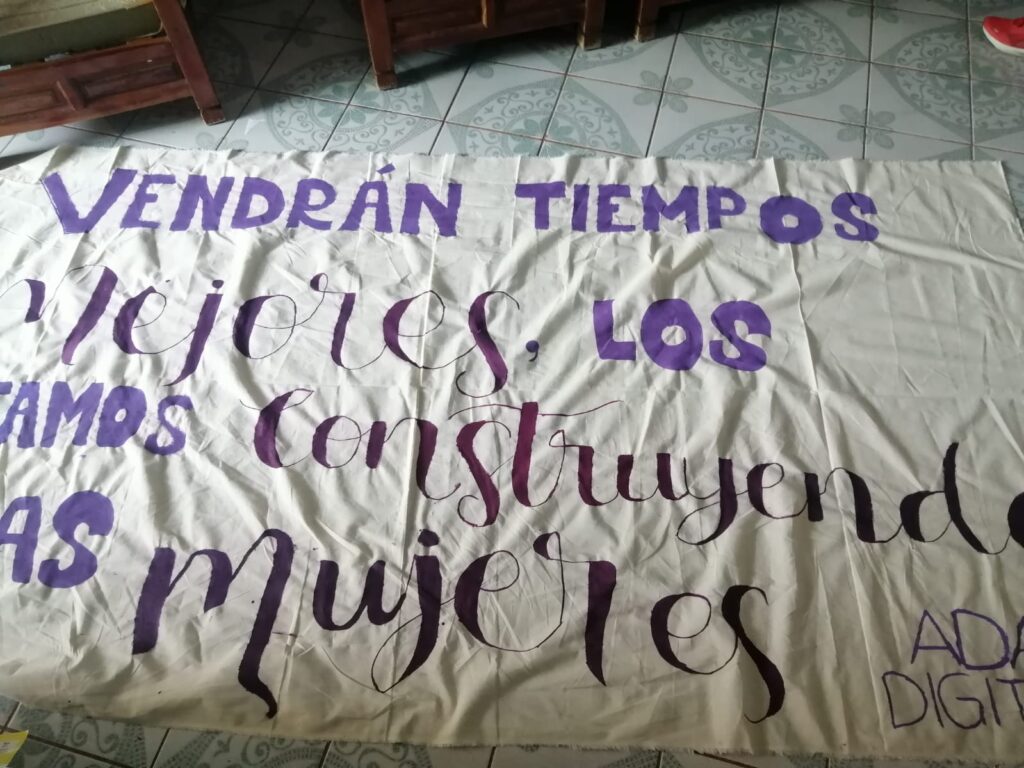 VENDRÁN TIEMPOS
Mejores, LOS
TAMOS construyendo
AS mujeres
ADA
DIGIT